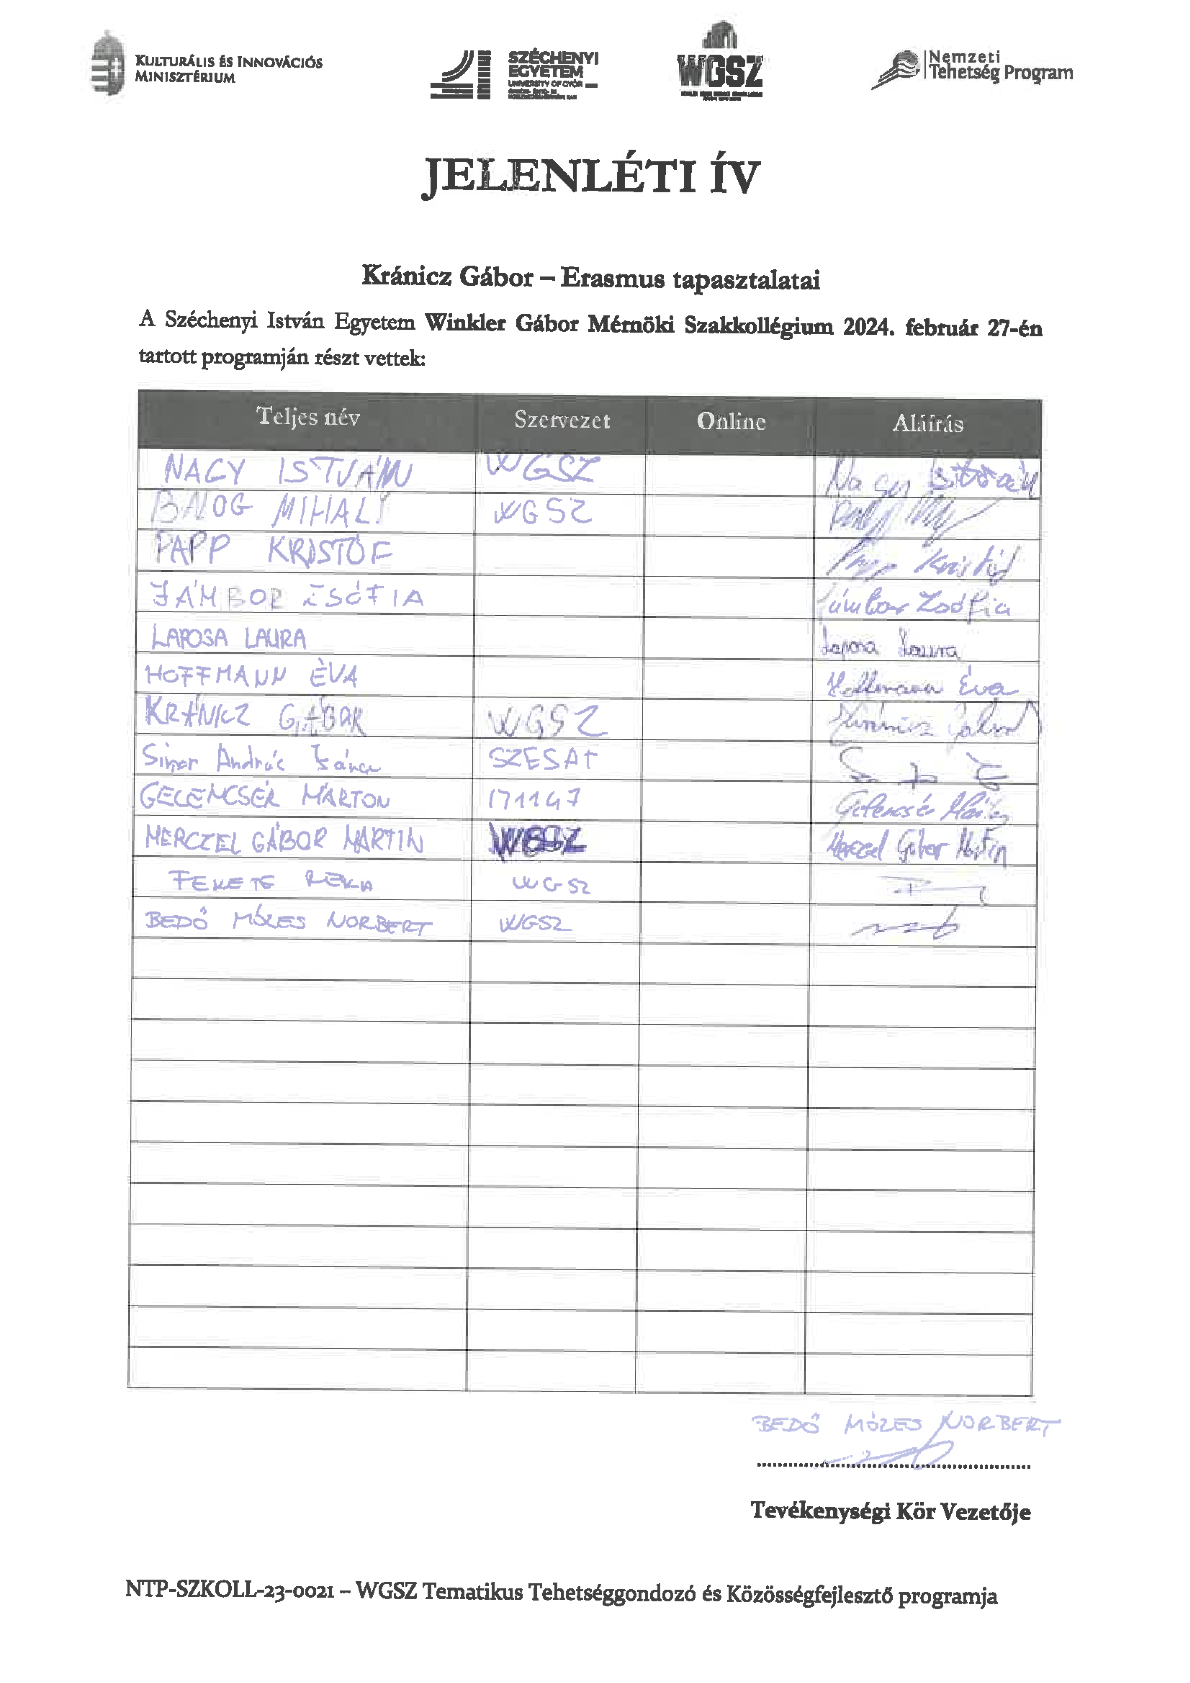 KULTURÁLIS ÉS INNOVÁCIÓS
MINISZTÉRIUM
SZÉCHENYI
EGYETEM
UNIVERSITY OF GYŐR
WGSZ
Nemzeti
Tehetség Program
JELENLÉTI ÍV
Kránicz Gábor – Erasmus tapasztalatai
A Széchenyi István Egyetem Winkler Gábor Mérnöki Szakkollégium 2024. február 27-én
tartott programján részt vettek:
Teljes név Szervezet Online Aláírás
NAGY ISTVÁN WGSZ Nagy István
BALOG MIHÁLY WGSZ
PAPP KRISTÓF Papp Kristóf
JÁMBOR ZSÓFIA Jámbor Zsófia
LAPOSA LAURA Laposa Laura
HOFFMANN ÉVA Hoffmann Éva
KRÁNICZ GÁBOR WGSZ Kránicz Gábor
Simor András SZESAT
GELENCSÉR MÁRTON 171147 Gelencsér Márton
MERCZEL GÁBOR MARTIN WGSZ Merczel Gábor Martin
FEKETE RÉKA WGSZ
BEDŐ MÓZES NORBERT WGSZ
BEDŐ MÓZES NORBERT
Tevékenységi Kör Vezetője
NTP-SZKOLL-23-0021 – WGSZ Tematikus Tehetséggondozó és Közösségfejlesztő programja